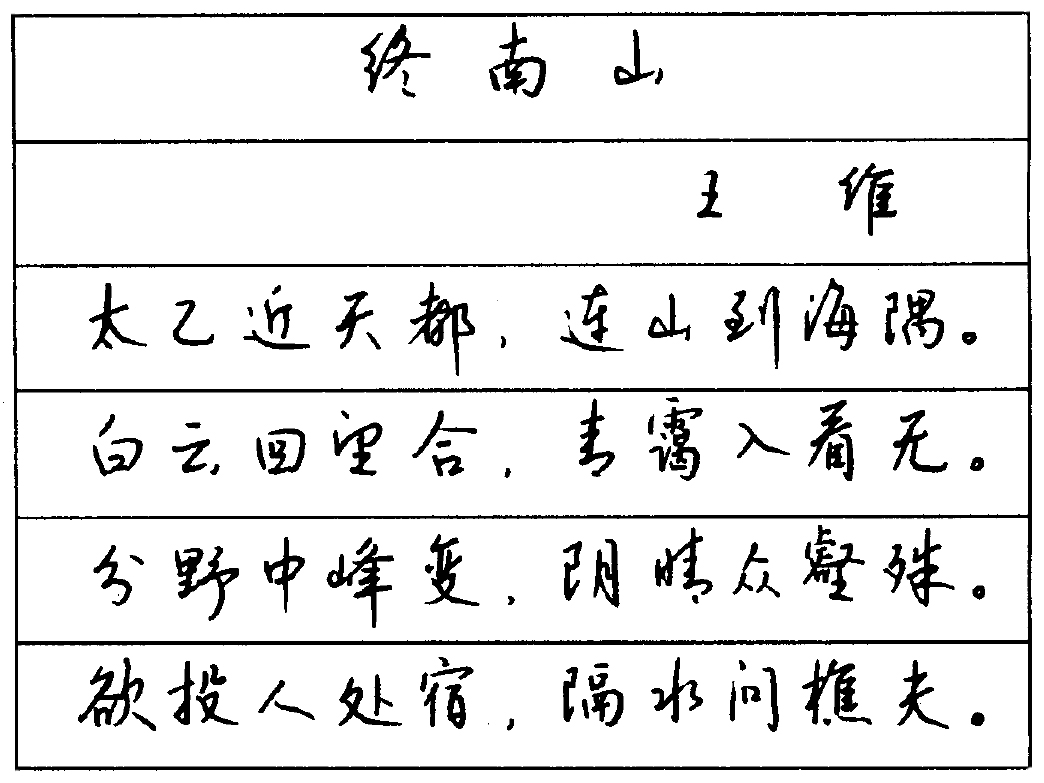 终南山
王维
太乙近天都，连山到海隅。
白云回望合，青霭入看无。
分野中峰变，阴晴众壑殊。
欲投人处宿，隔水问樵夫。